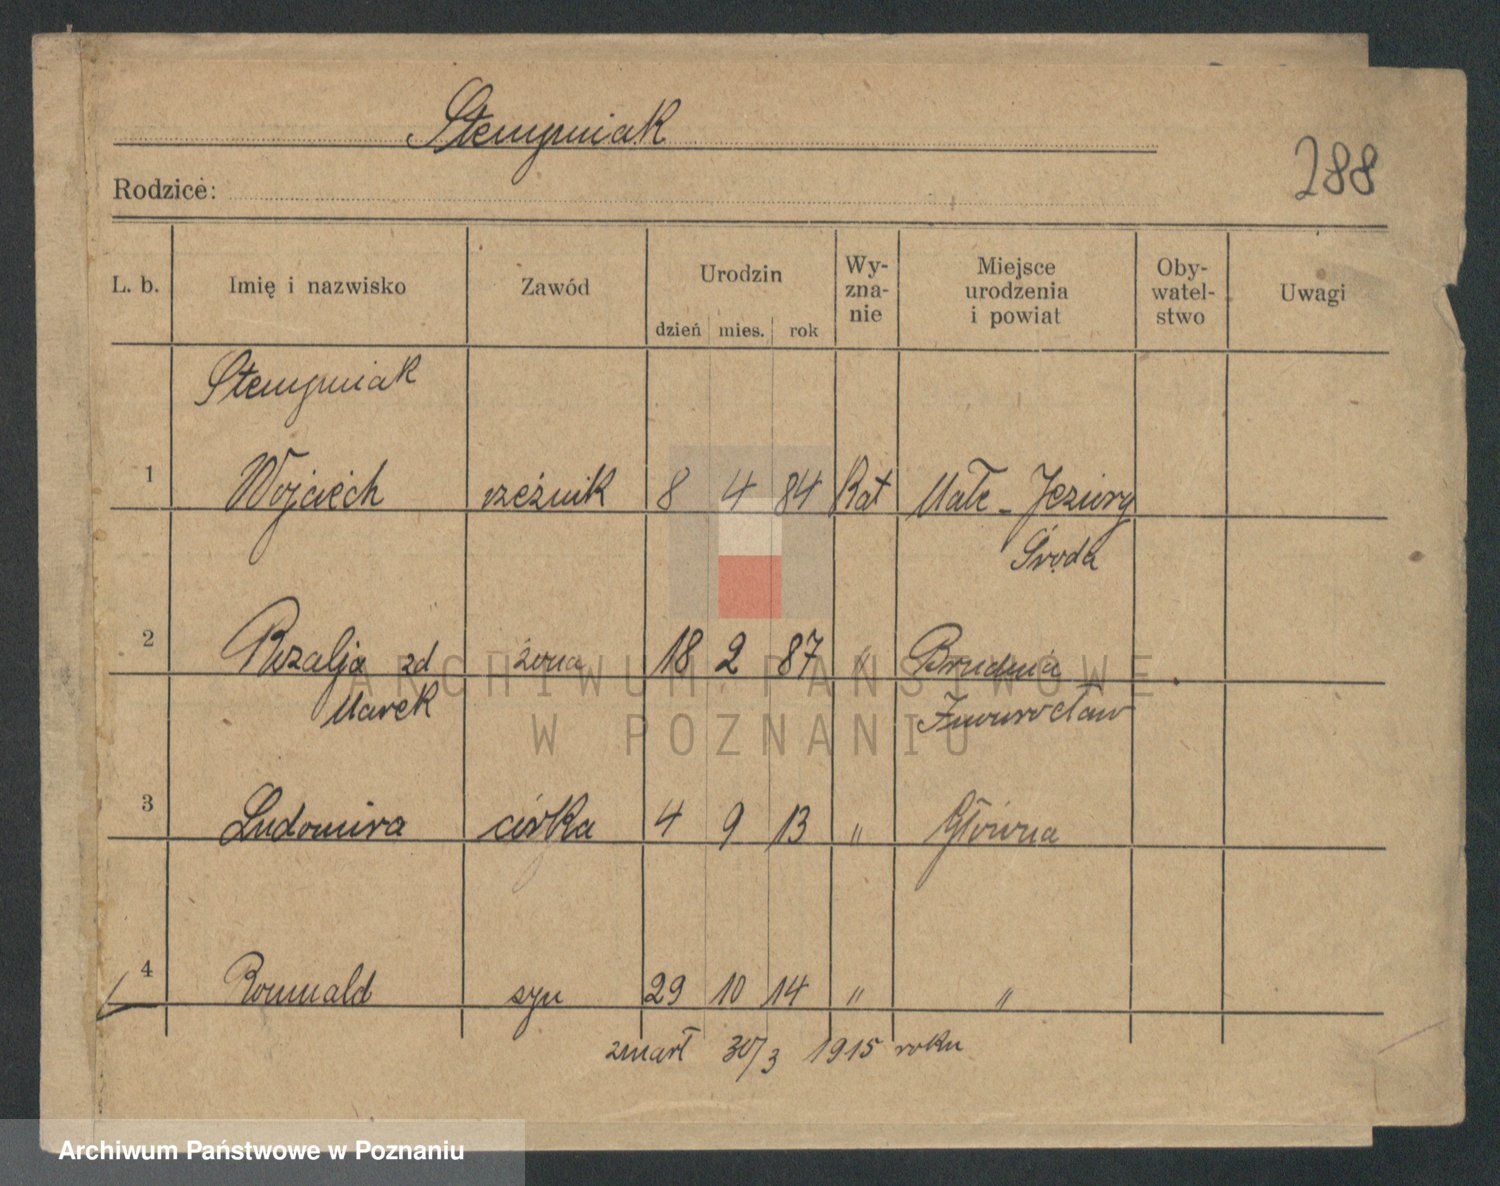 Stempniak
288
Rodzice:
L. b. Imię i nazwisko Zawód Urodzin dzień mies. rok Wy-zna-nie Miejsce urodzenia i powiat Oby-watel-stwo Uwagi
Stempniak
1 Wojciech rzeźnik 8 4 84 Kat Małe - Jeziory
Środa
2 Rozalja zd żona 18 2 87 " Brudnia
Marek Inowrocław
3 Ludomira córka 4 9 13 " Główna
4 Romuald syn 29 10 14 " "
zmarł 30/3 1915 roku
ARCHIWUM PAŃSTWOWE
W POZNANIU
Archiwum Państwowe w Poznaniu